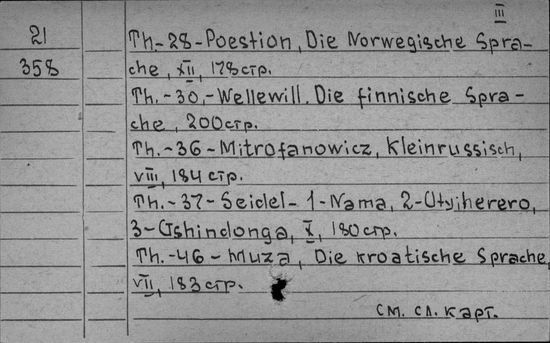 III
21
Th.-28-Poestion, Die Norwegische Spra-
358
che, XII, 178стр.
Th.-30,-Wellewill. Die finnische Spra-
che, 200стр.
Th.-36-Mitrofanowicz, Kleinrussisch,
VIII, 184 стр.
Th.-37-Seidel-1-Nama, 2-Otyiherero,
3-Oshindonga, X, 180стр.
Th.-46-Muza, Die kroatische Sprache,
VII, 183 стр.
см. сл. карт.